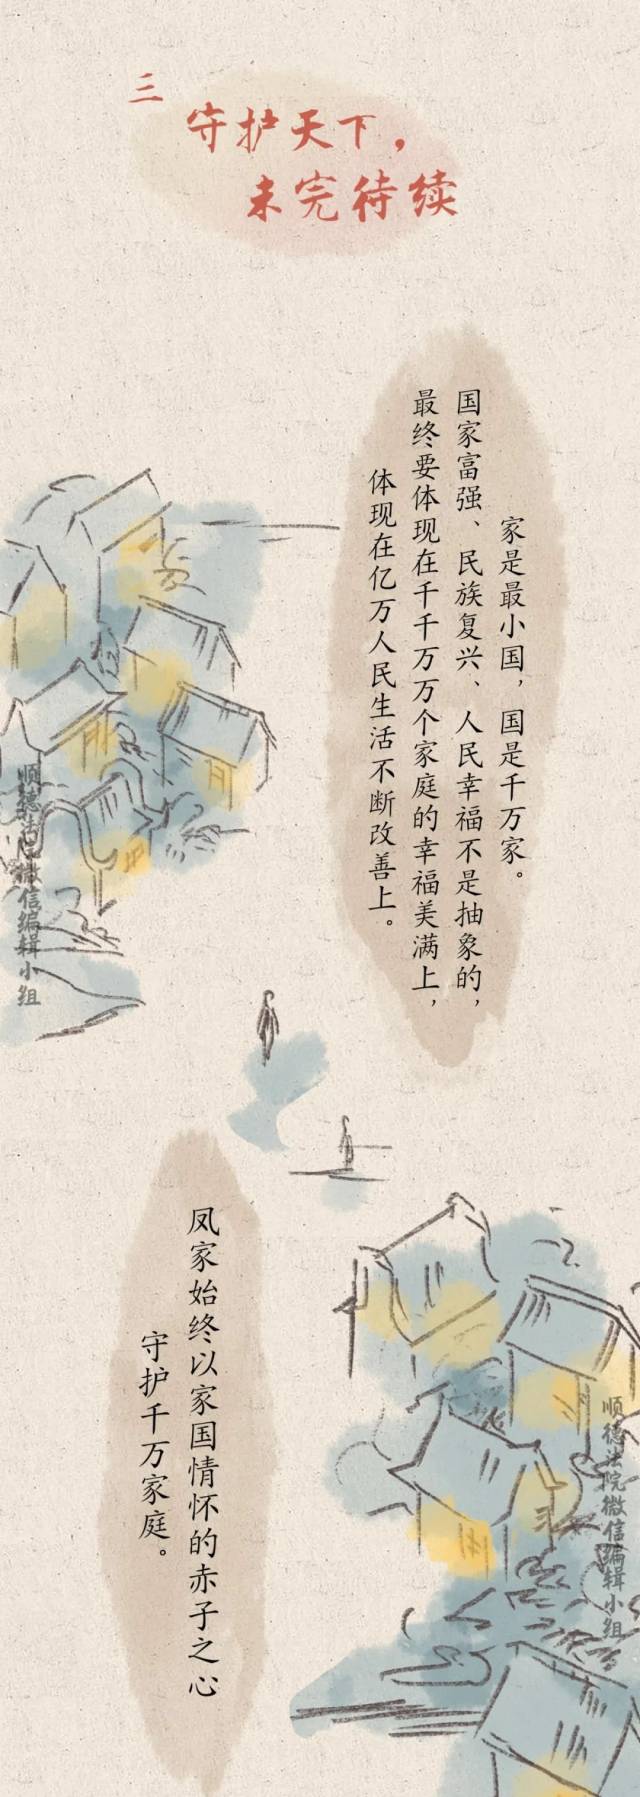 三
守护天下，
未完待续
家是最小国，国是千万家。
国家富强、民族复兴、人民幸福不是抽象的，
最终要体现在千千万万个家庭的幸福美满上，
体现在亿万人民生活不断改善上。
顺德法院微信编辑小组
凤家始终以家国情怀的赤子之心
守护千万家庭。
顺德法院微信编辑小组